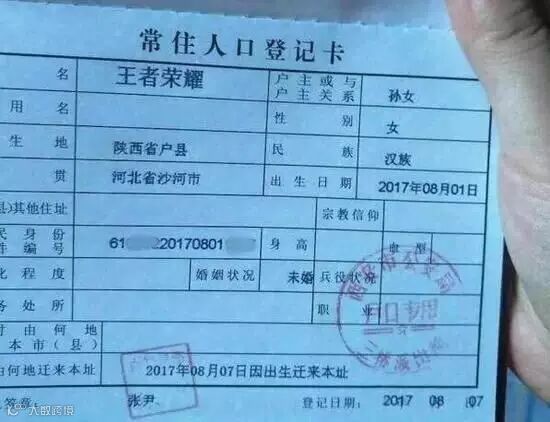 常住人口登记卡
名 王者荣耀 户主或与户主关系 孙女
用名 性别 女
生地 陕西省户县 民族 汉族
贯 河北省沙河市 出生日期 2017年08月01日
县)其他住址 宗教信仰
民身份件编号 61 220170801 身高 血型
化程度 婚姻状况 未婚 兵役状况
务处所 职业
时由何地本市(县)
由何地迁来本址 2017年08月07日因出生迁来本址
签章: 张尹 登记日期: 2017 08 07
户口专用
大数跨境